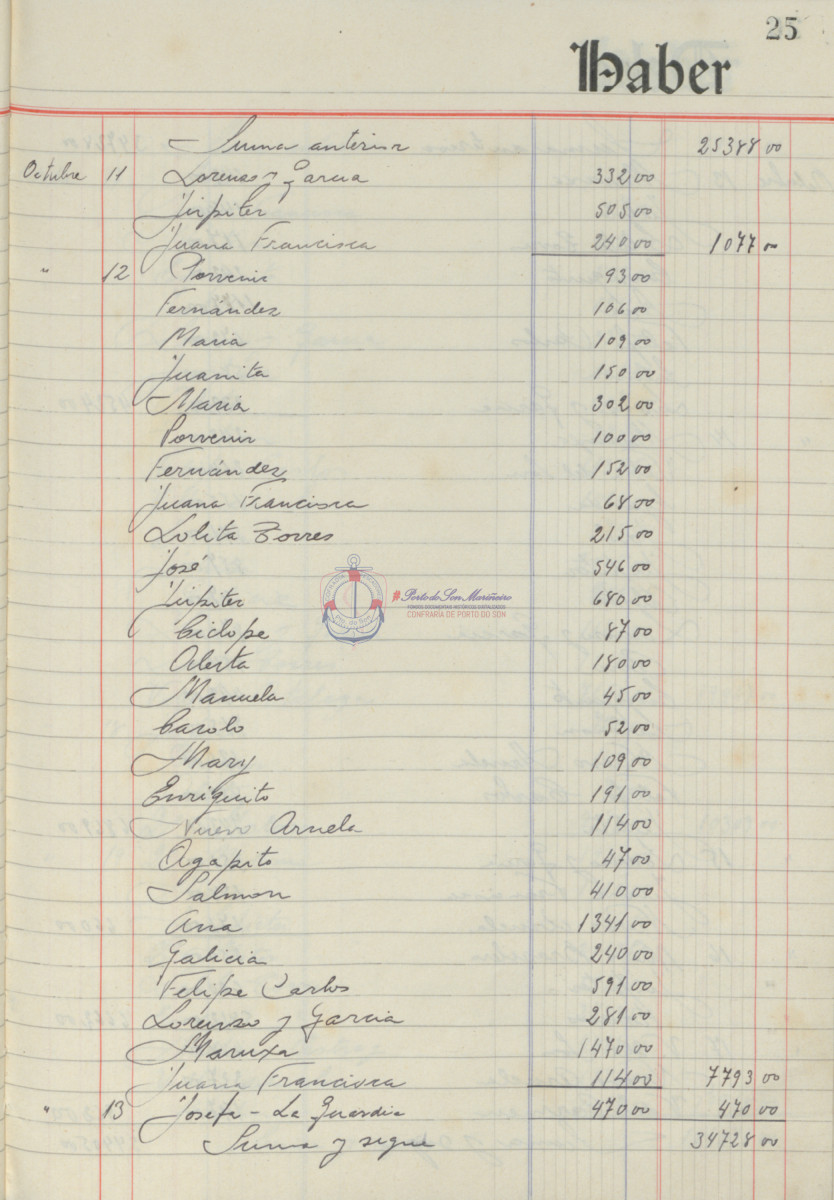 25
Haber
Suma anterior 25388 00
Octubre 11 Lorenzo y Garcia 332 00
Júpiter 505 00
Juana Francisca 240 00 1077 00
" 12 Porvenir 93 00
Fernández 106 00
Maria 109 00
Juanita 150 00
Maria 302 00
Porvenir 100 00
Fernández 152 00
Juana Francisca 68 00
Lolita Torres 215 00
José 546 00
Júpiter 680 00
Ciclope 87 00
Alerta 180 00
Manuela 45 00
Carolo 52 00
Mary 109 00
Enriquito 191 00
Nuevo Arnela 114 00
Agapito 47 00
Salmon 410 00
Ana 1341 00
Galicia 240 00
Felipe Carlos 591 00
Lorenzo y Garcia 281 00
Maruxa 1470 00
Juana Francisca 114 00 7793 00
" 13 Josefa - La Guardia 470 00 470 00
Suma y sigue 34728 00
#PortodoSonMariñeiro
FONDOS DOCUMENTAIS HISTÓRICOS DIXITALIZADOS
CONFRARÍA DE PORTO DO SON